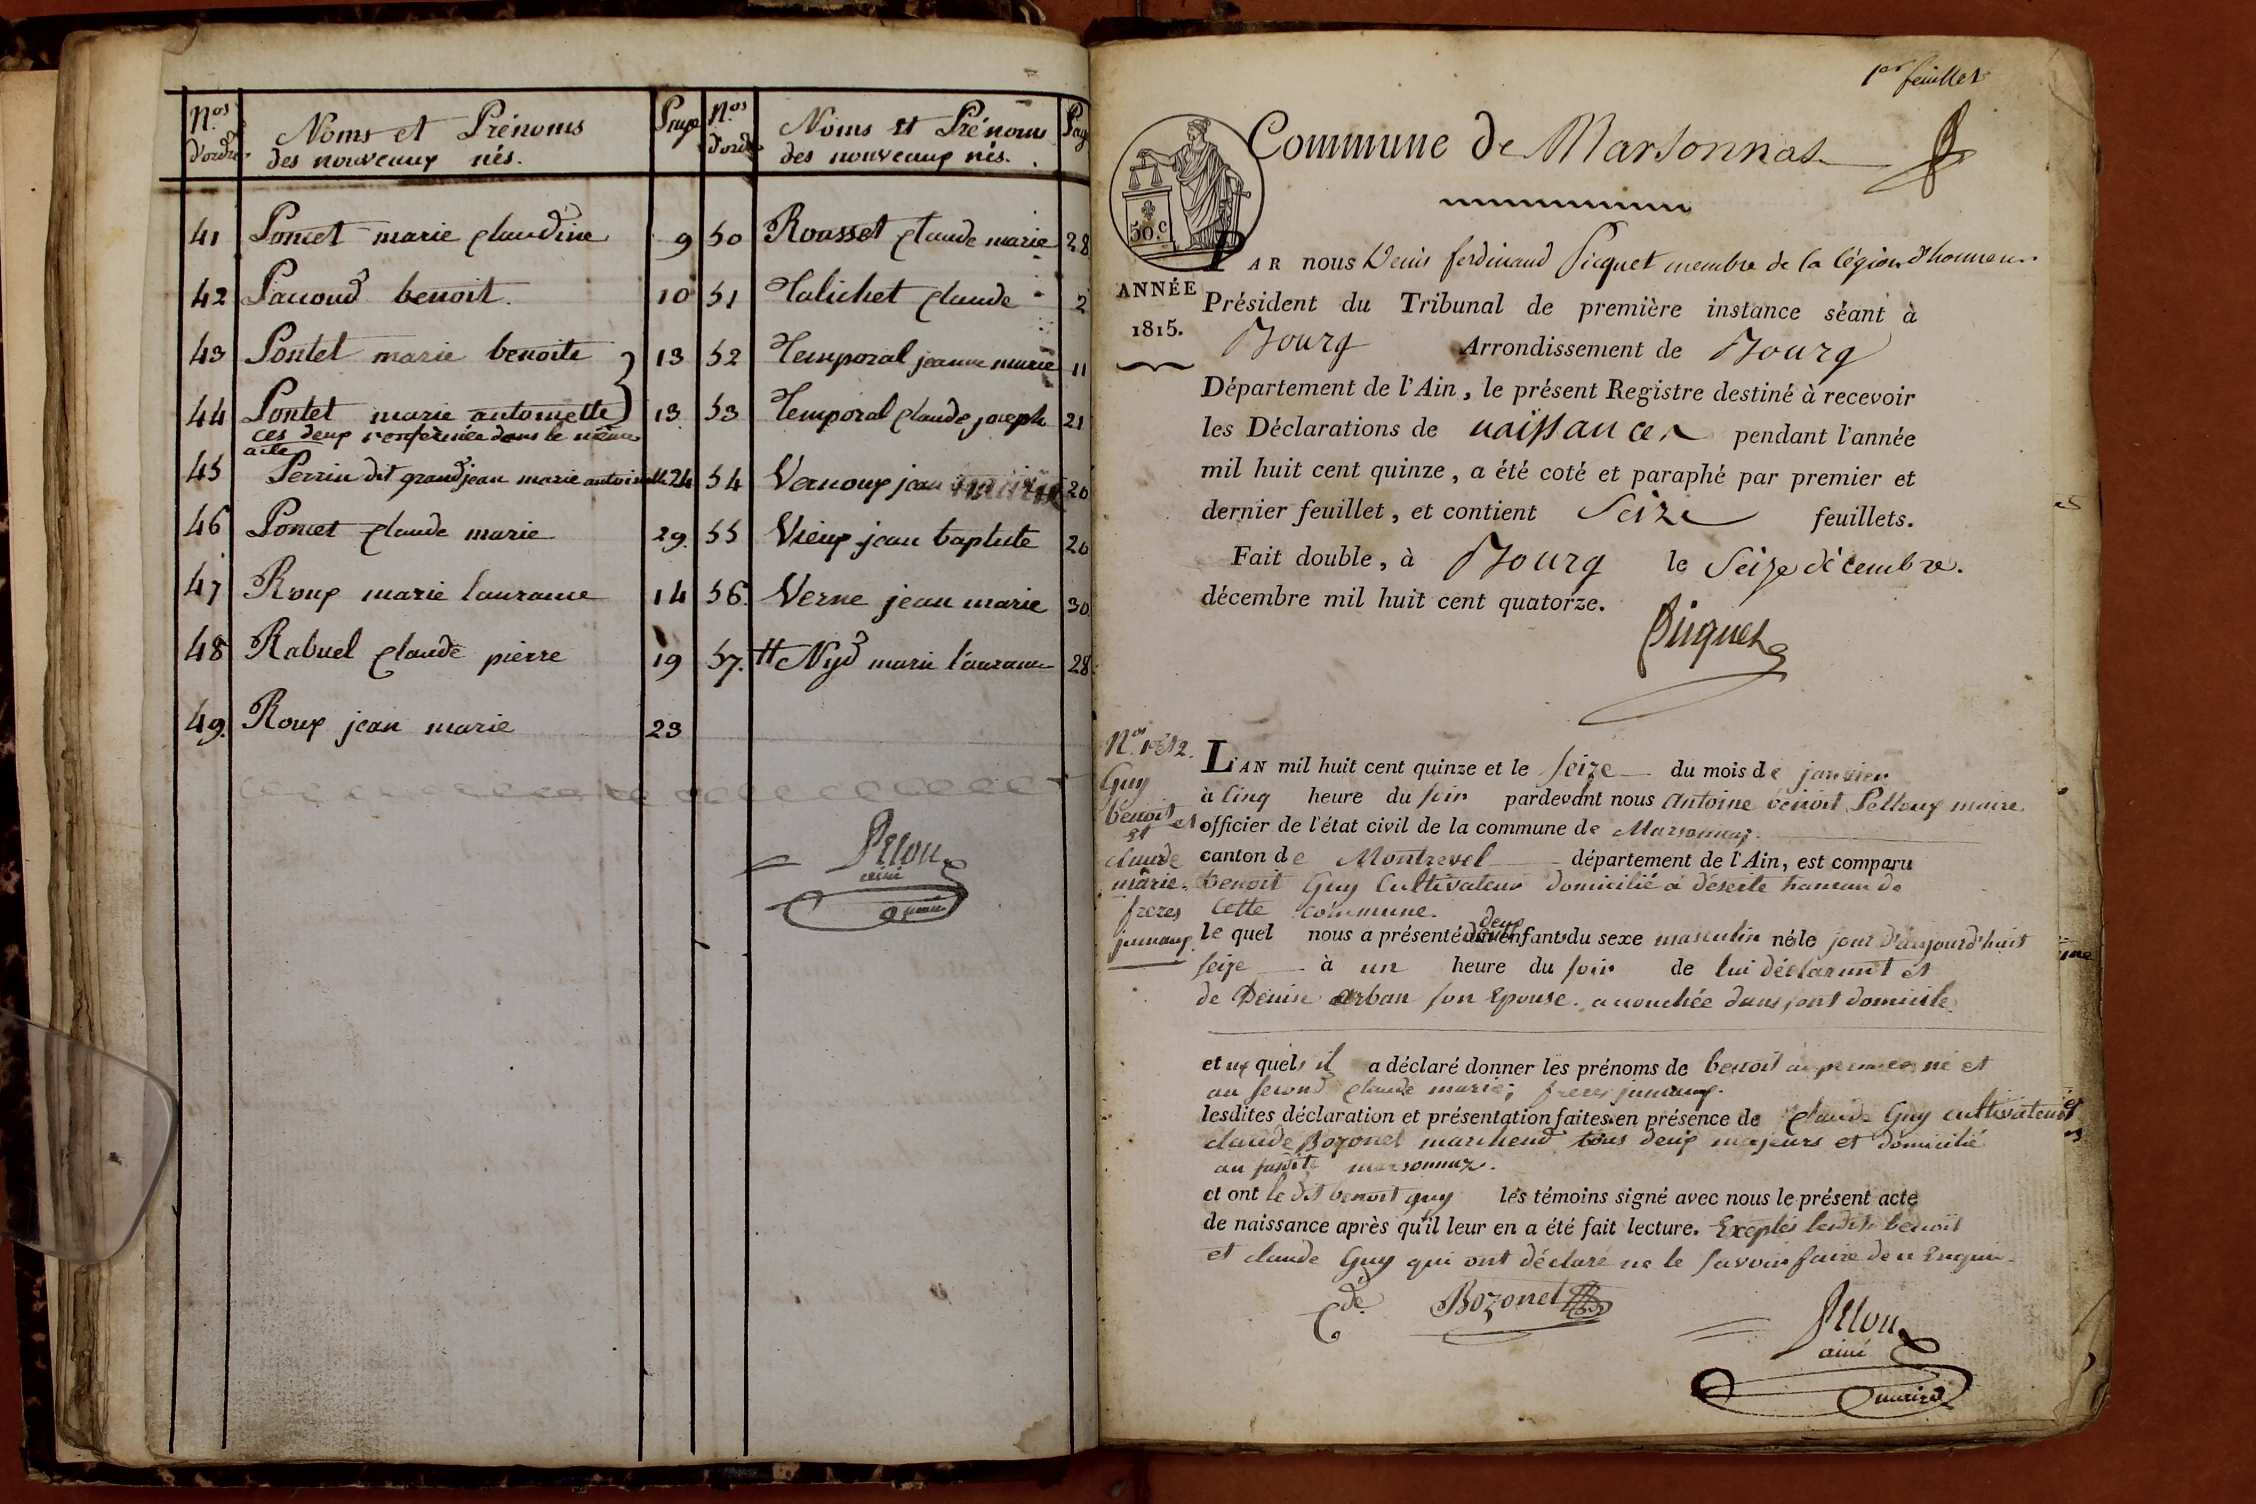 Nos d'ordre
Noms et Prénoms
des nouveaux nés.
Page
41 Poncet marie claudine 9
42 Pacoud benoit. 10
43 Pontet marie benoite 13
44 Pontet marie antoinette 13
ces deux renfermée dans le même
acte
45 Perrin dit grandjean marie antoinette 24
46 Poncet claude marie 29.
47 Roux marie laurance 14
48 Rabuel claude pierre 19
49. Roux jean marie 23
Nos d'ordre
Noms et Prénoms
des nouveaux nés.
Pag
50 Rousset claude marie 28
51 Talichet claude 2
52 Temporal jeanne marie 11
53 Temporal claude joseph 21
54 Vernoux jean marie 20
55 Vieux jean baptiste 20
56. Verne jean marie 30
57. Nyd marie laurance 28
Pelloux
ainé
maire
1er feuillet
Commune de Marsonnas
50.c
ANNÉE
1815.
PAR nous Denis ferdinand Picquet membre de la légion d'honneur
Président du Tribunal de première instance séant à
Bourg Arrondissement de Bourg
Département de l'Ain, le présent Registre destiné à recevoir
les Déclarations de naissances pendant l'année
mil huit cent quinze, a été coté et paraphé par premier et
dernier feuillet, et contient Seize feuillets.
Fait double, à Bourg le Seize décembre.
décembre mil huit cent quatorze.
Picquet
Nos 1 et 2.
Guy
benoit et
et
claude
marie.
freres
jumaux
L'AN mil huit cent quinze et le seize du mois de janvier
à cinq heure du soir pardevant nous antoine benoit Pelloux maire
officier de l'état civil de la commune de Marsonnaz.
canton de Montrevel département de l'Ain, est comparu
benoit Guy Cultivateur domicilié à déserte hameau de
cette commune.
le quel nous a présenté deux enfants du sexe masculin né le jour d'aujourd'huit
seize à un heure du soir de lui déclarant et
de Denise arban son Epouse. accouchée dans sont domicile
et ux quels il a déclaré donner les prénoms de benoit au premier né et
au second claude marie; freres jumaux.
lesdites déclaration et présentation faites en présence de claude Guy cultivateur et
claude Bozonet marchend tous deux majeurs et domicilié
au susdit marsonnaz.
et ont le dit benoit guy les témoins signé avec nous le présent acte
de naissance après qu'il leur en a été fait lecture. Exeptés lesdits benoit
et claude Guy qui ont déclaré ne le savoir faire de ce Enquis.
Cde Bozonet
Pelloux
ainé
maire